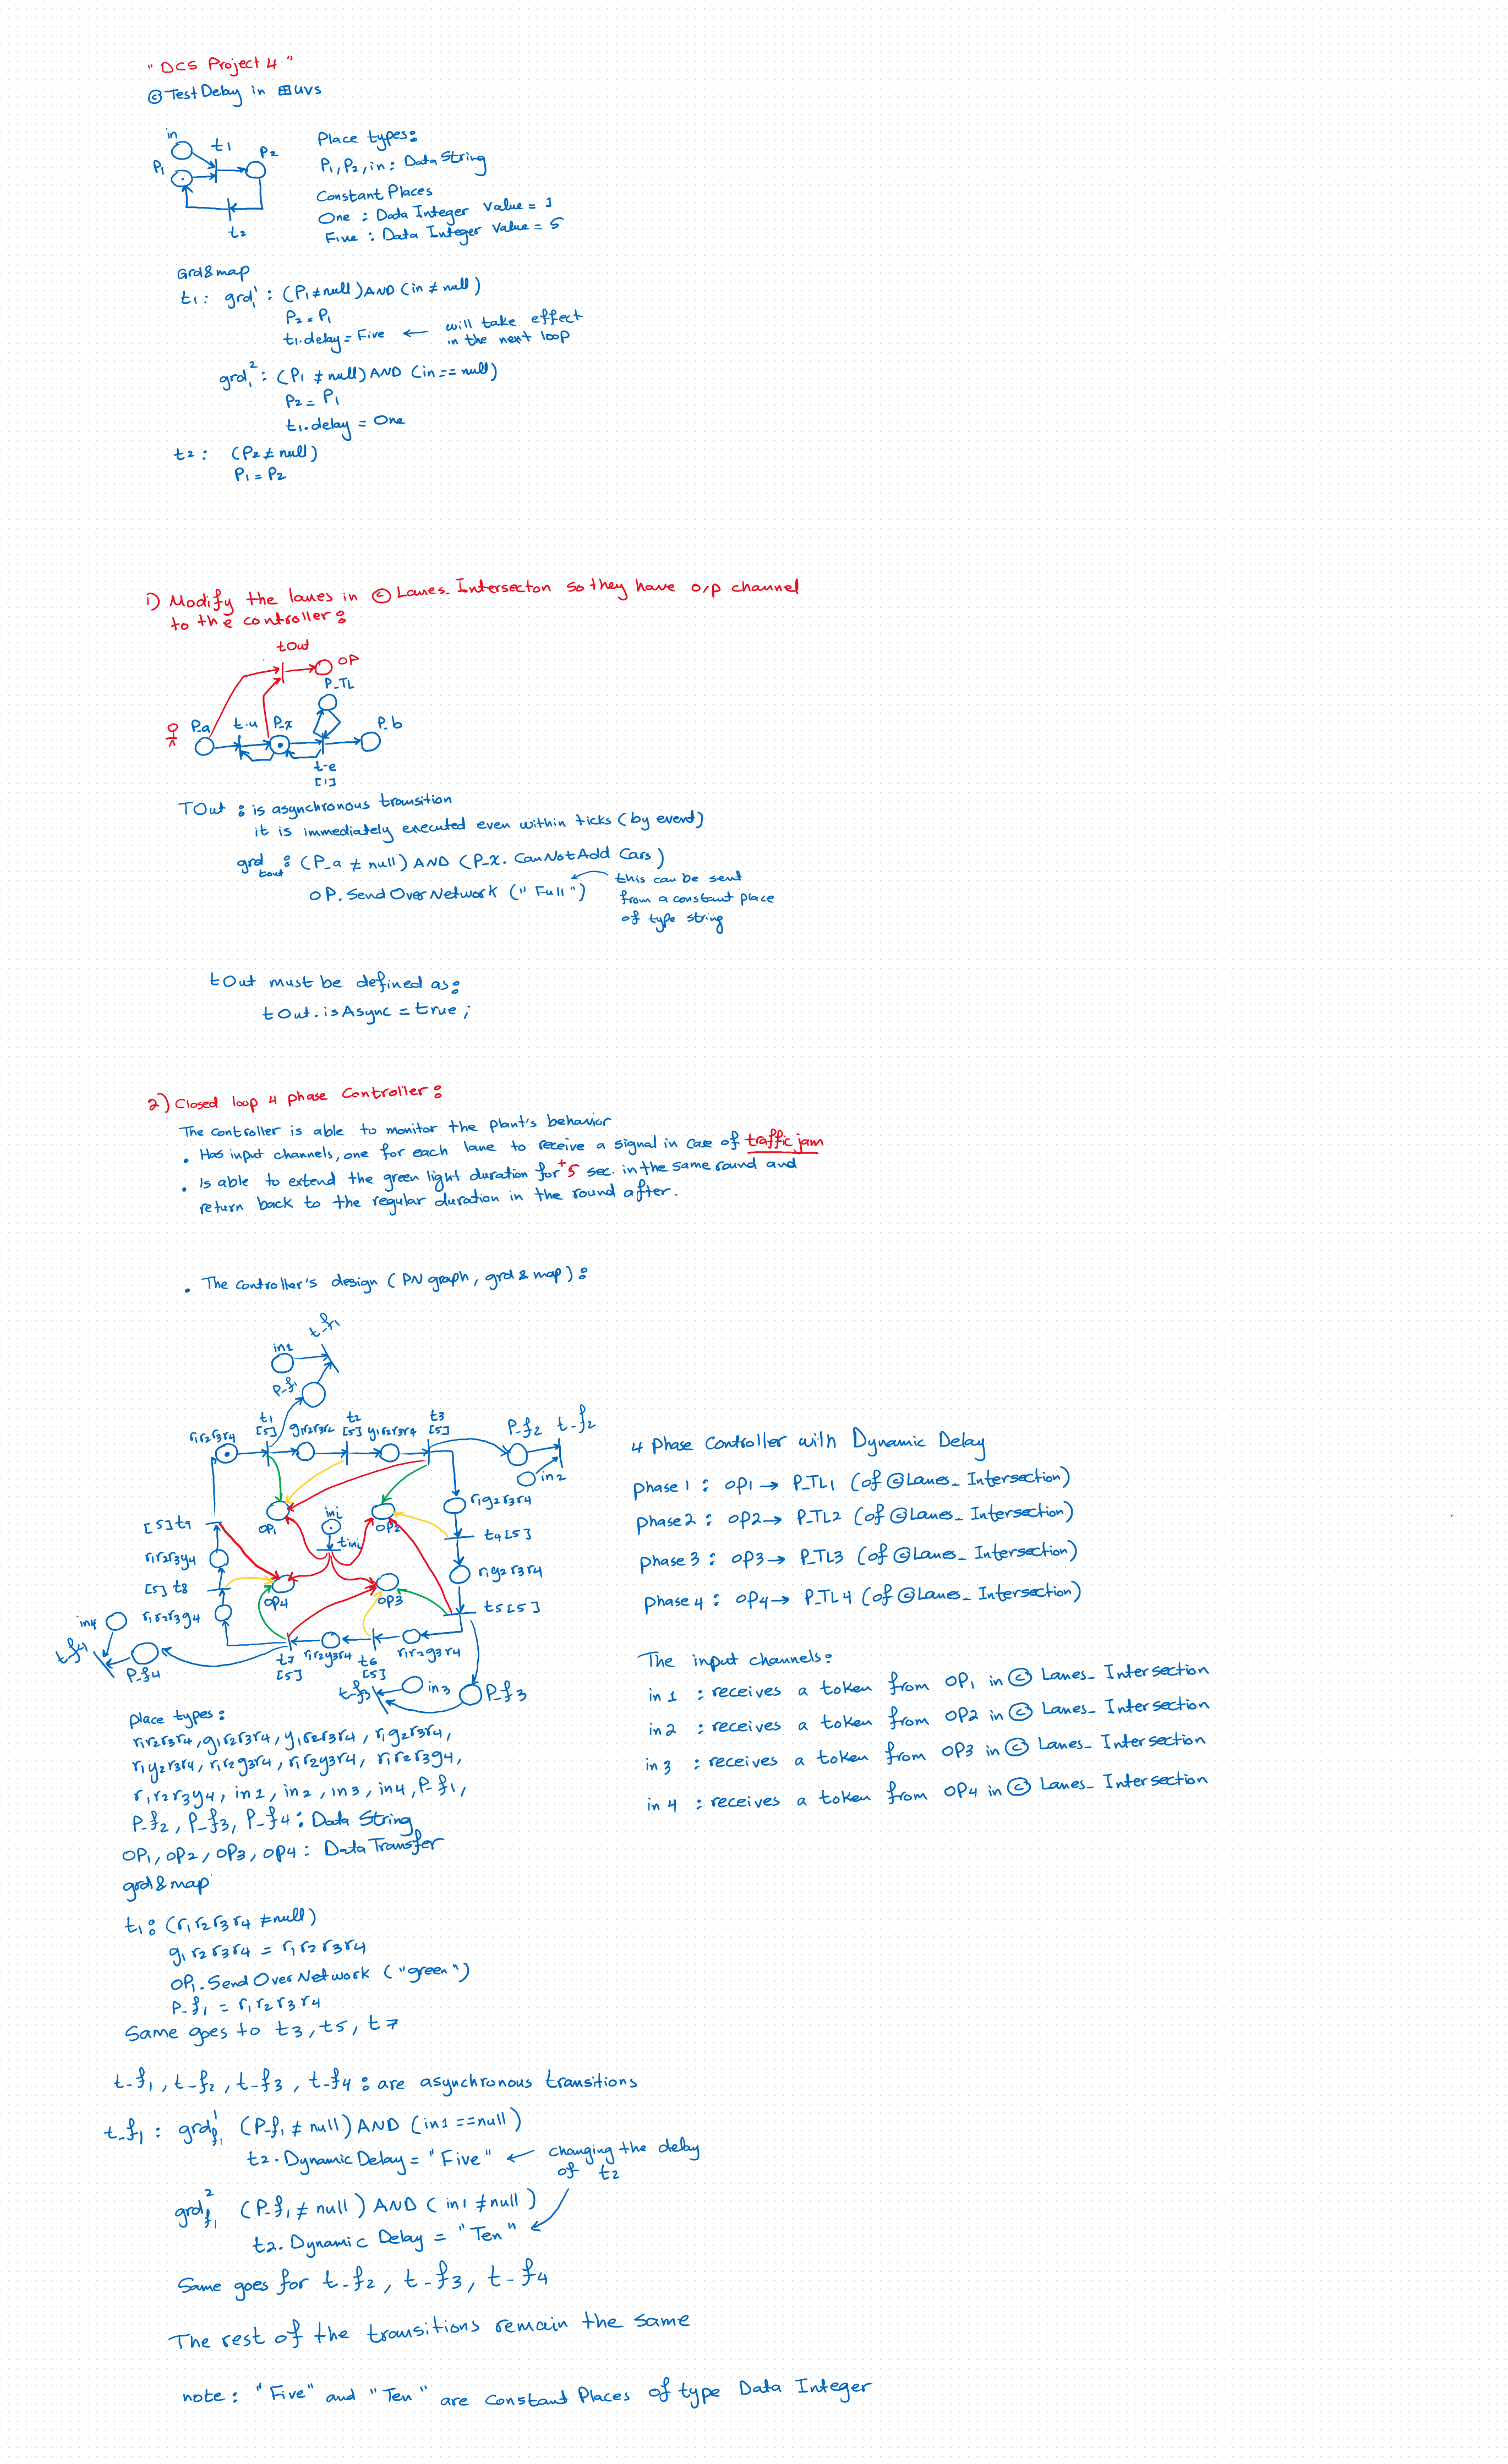 "DCS Project 4"
© Test Delay in ⊞UVS
in
t1
P2
P1
t2
Place types:
P1, P2, in : Data String
Constant Places
One : Data Integer Value = 1
Five : Data Integer Value = 5
Grd&map
t1: grd1¹ : (P1≠null) AND (in ≠ null)
P2 = P1
t1.delay = Five ← will take effect
in the next loop
grd1² : (P1 ≠ null) AND (in == null)
P2 = P1
t1.delay = One
t2 : (P2 ≠ null)
P1 = P2
1) Modify the lanes in © Lanes_Intersecton so they have o/p channel
to the controller:
tOut
OP
P_TL
P_a
t_u
P_x
P_b
t_e
[1]
TOut : is asynchronous transition
it is immediately executed even within ticks (by event)
grd tout : (P_a ≠ null) AND (P_x. CanNotAdd Cars)
OP. SendOverNetwork ("Full")
this can be sent
from a constant place
of type string
tOut must be defined as:
tOut.isAsync = true;
2) Closed loop 4 phase Controller:
The controller is able to monitor the plant's behavior
• Has input channels, one for each lane to receive a signal in case of traffic jam
• Is able to extend the green light duration for +5 sec. in the same round and
return back to the regular duration in the round after.
• The controller's design (PN graph, grd & map):
t_f1
in1
P_f1
t1
[5]
g1r2r3r4
t2
[5]
y1r2r3r4
t3
[5]
P_f2
t_f2
r1r2r3r4
in2
r1g2r3r4
OP1
ini
tini
OP2
t4[5]
[5]t9
r1r2r3y4
r1y2r3r4
[5] t8
OP4
OP3
t5[5]
in4
r1r2r3g4
t_f4
P_f4
t7
[5]
r1r2y3r4
t6
[5]
r1r2g3r4
t_f3
in3
P_f3
4 Phase Controller with Dynamic Delay
phase 1 : op1 → P_TL1 (of © Lanes_ Intersection)
phase 2 : op2 → P_TL2 (of © Lanes_ Intersection)
phase 3 : op3 → P_TL3 (of © Lanes_ Intersection)
phase 4 : op4 → P_TL4 (of © Lanes_ Intersection)
The input channels:
in 1 : receives a token from OP1 in © Lanes_ Intersection
in 2 : receives a token from OP2 in © Lanes_ Intersection
in 3 : receives a token from OP3 in © Lanes_ Intersection
in 4 : receives a token from OP4 in © Lanes_ Intersection
place types:
r1r2r3r4, g1r2r3r4, y1r2r3r4, r1g2r3r4,
r1y2r3r4, r1r2g3r4, r1r2y3r4, r1r2r3g4,
r1r2r3y4, in1, in2, in3, in4, P_f1,
P_f2, P_f3, P_f4 : Data String
OP1, OP2, OP3, OP4 : Data Transfer
grd & map
t1 : (r1r2r3r4 ≠ null)
g1r2r3r4 = r1r2r3r4
OP1. SendOverNetwork ("green")
P_f1 = r1r2r3r4
Same goes to t3, t5, t7
t_f1, t_f2, t_f3, t_f4 : are asynchronous transitions
t_f1 : grd f1¹ (P_f1 ≠ null) AND (in1 == null)
t2. DynamicDelay = "Five" ← changing the delay
of t2
grd f1² (P_f1 ≠ null) AND (in1 ≠ null)
t2. Dynamic Delay = "Ten"
Same goes for t_f2, t_f3, t_f4
The rest of the transitions remain the same
note: "Five" and "Ten" are Constant Places of type Data Integer